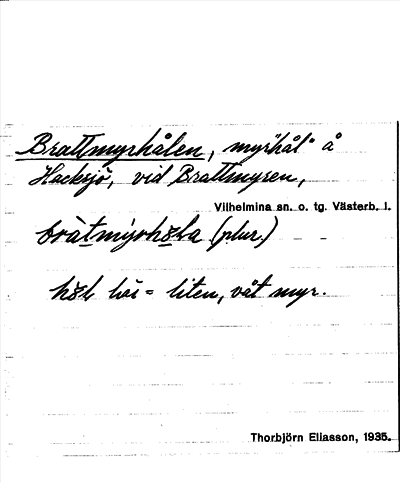 Brattmyrhålen, myr"hål" å
Hacksjö, vid Brattmyren,
Vilhelmina sn. o. tg. Västerb. l.
(plur.)
= liten, våt myr.
Thorbjörn Eliasson, 1935.